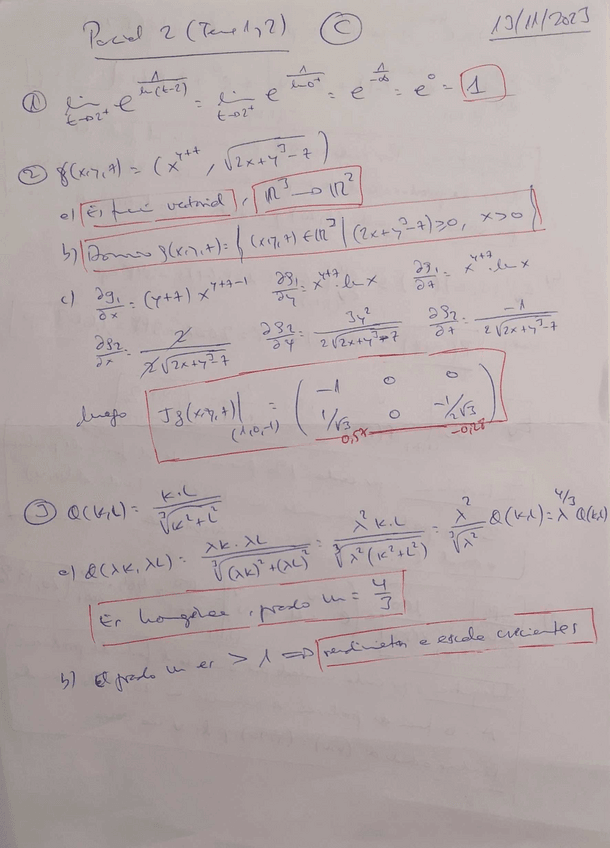 Parcial 2 (Tema 1 y 2) (C) 13/11/2023
① lim t→2⁺ e^(1/ln(t-2)) = lim t→2⁺ e^(1/ln 0⁺) = e^(1/-∞) = e⁰ = 1
② g(x,y,z) = (x^(y+z), √(2x+y³-z))
a) Es función vectorial, ℝ³ → ℝ²
b) Dominio g(x,y,z) = {(x,y,z) ∈ ℝ³ | (2x+y³-z) ≥ 0, x>0}
c) ∂g₁/∂x = (y+z) x^(y+z-1) ∂g₁/∂y = x^(y+z) · ln x ∂g₁/∂z = x^(y+z) · ln x
∂g₂/∂x = 2/(2√(2x+y³-z)) ∂g₂/∂y = 3y²/(2√(2x+y³-z)) ∂g₂/∂z = -1/(2√(2x+y³-z))
luego Jg(x,y,z)|(1,0,-1) = ( -1 0 0
1/√3 0 -1/2√3 )
0,58 -0,28
③ Q(K,L) = K·L/∛(K²+L²)
a) Q(λK, λL) = λK·λL/∛((λK)²+(λL)²) = λ²K·L/∛(λ²(K²+L²)) = λ²/∛λ² Q(K,L) = λ^(4/3) Q(K,L)
Es homogénea, grado m = 4/3
b) El grado m es > 1 ⇒ rendimientos a escala crecientes